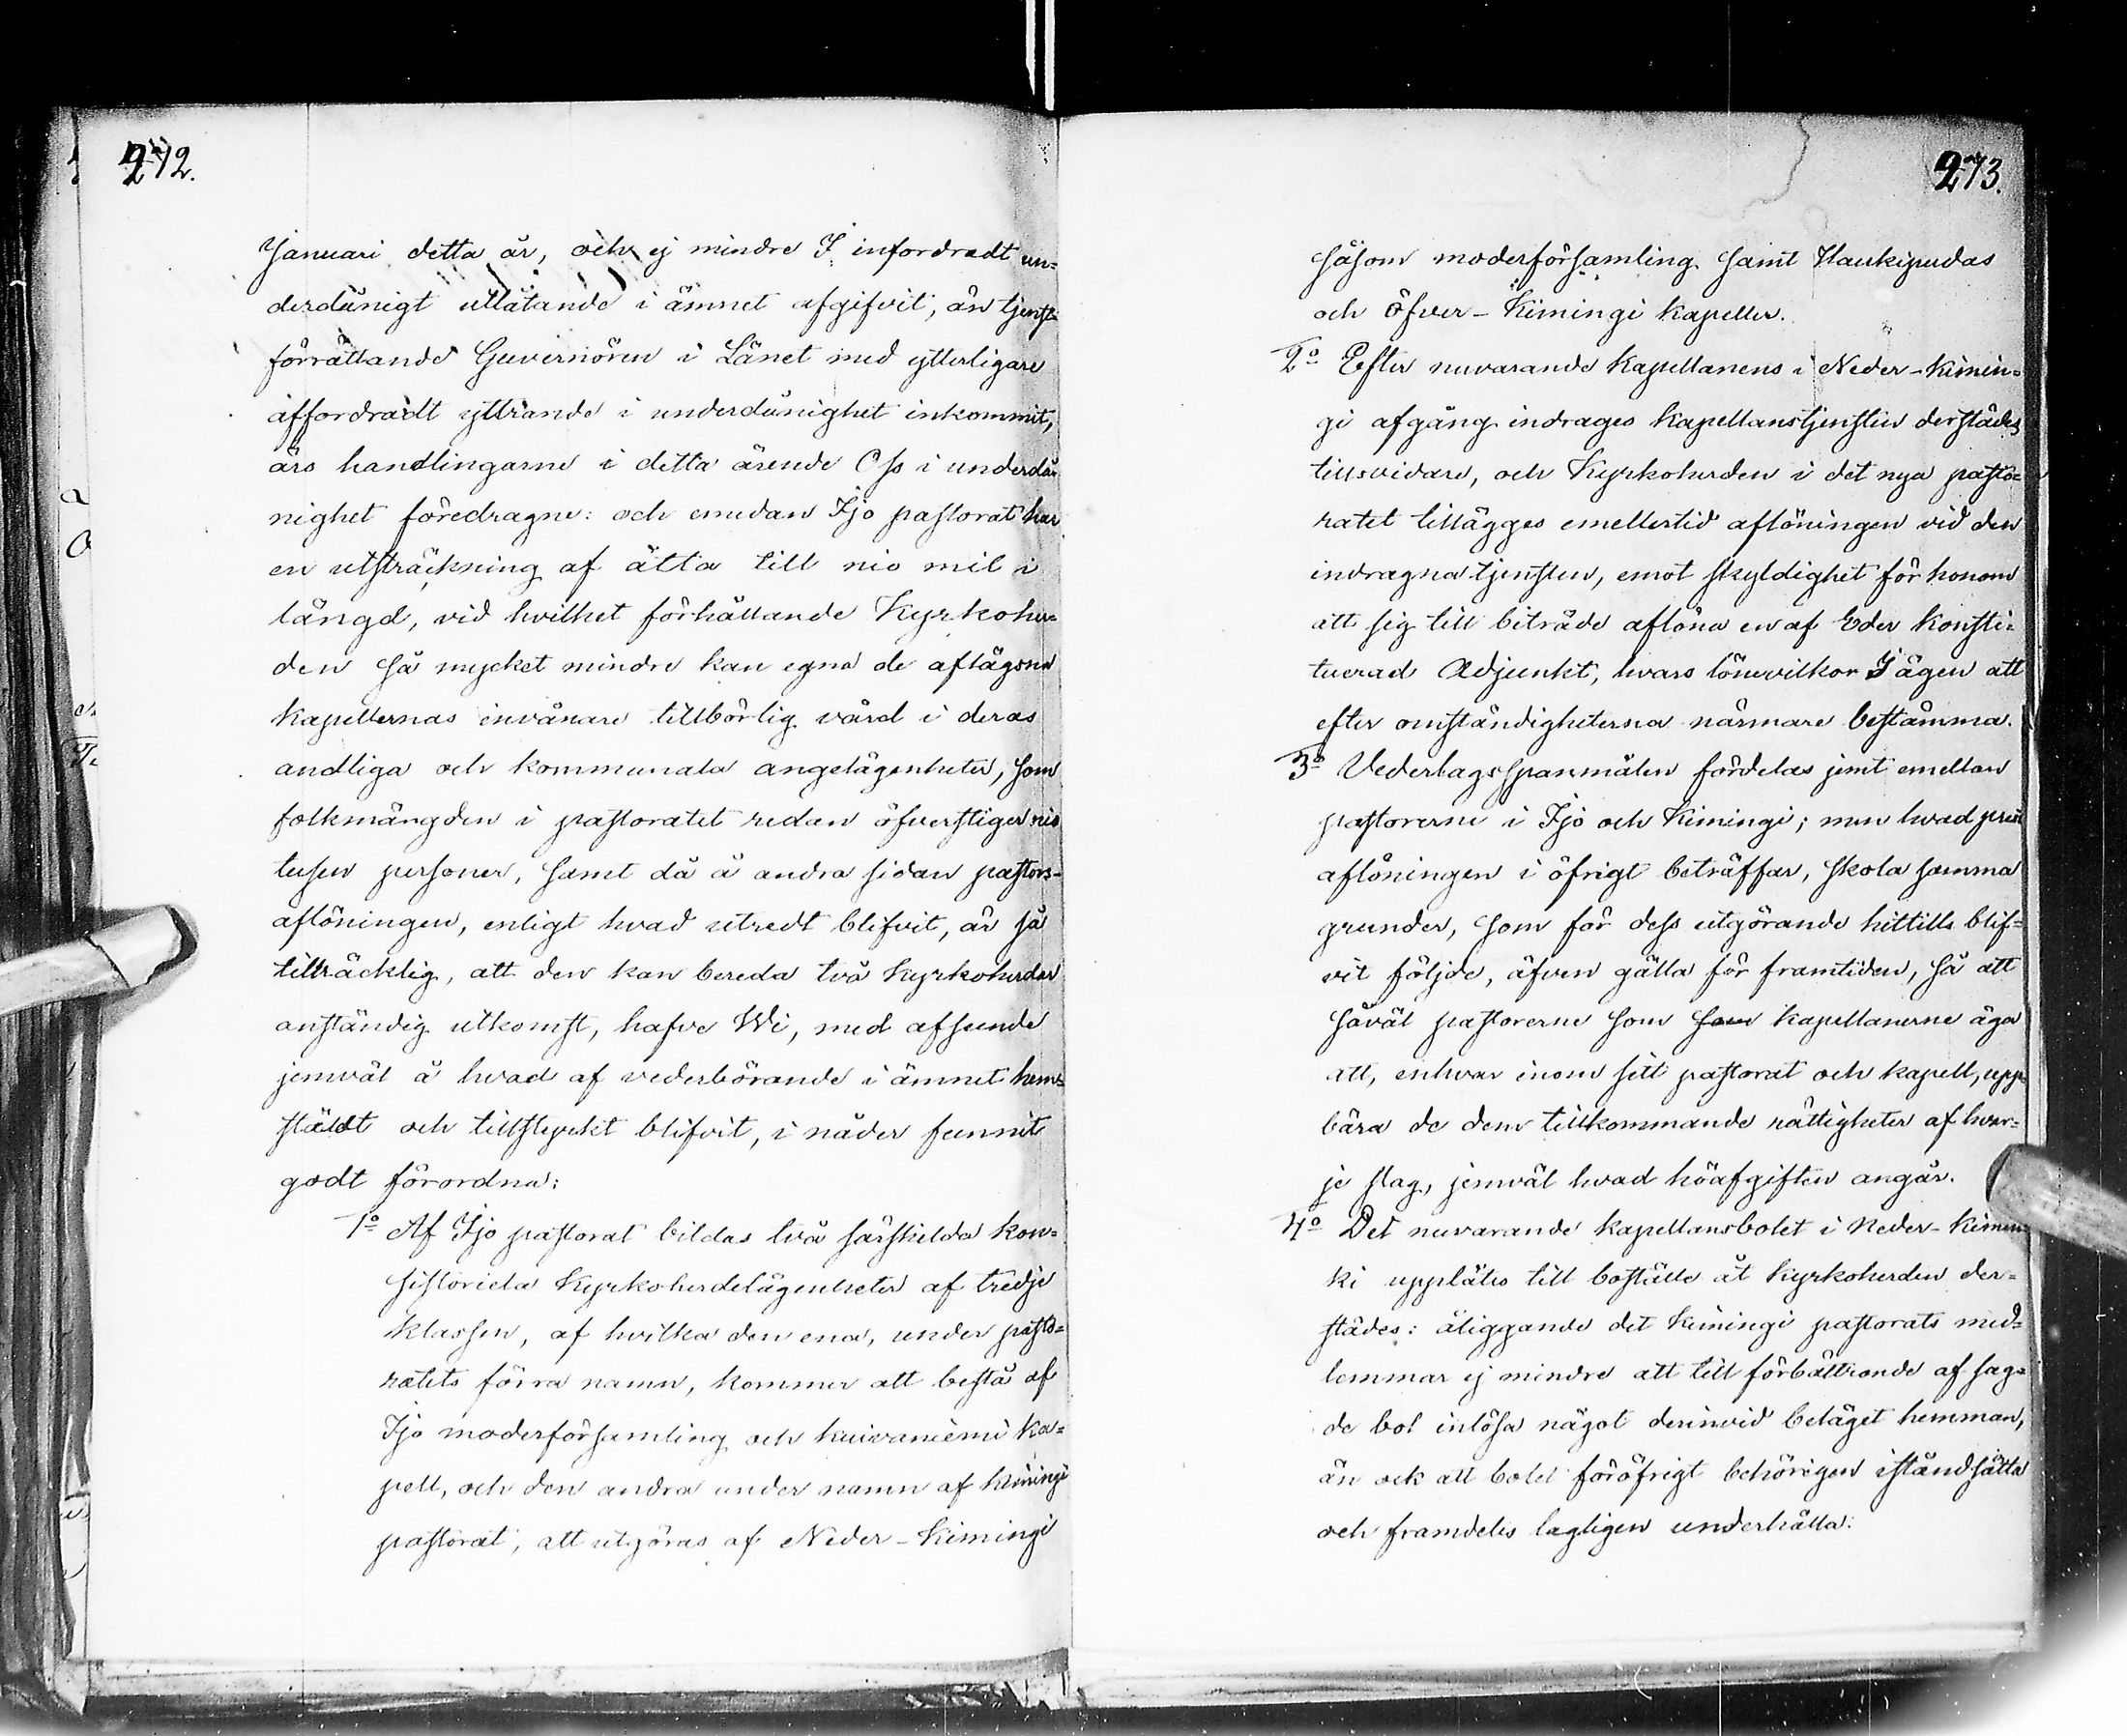 272.
Januari detta år, och ej mindre I infordradt un-
derdånigt utlåtande i ämnet afgifvit, än tjenst-
förrättande Guvernören i Länet med ytterligare
affordradt yttrande i underdånighet inkommit,
äro handlingarne i detta ärende Oss i underdå-
nighet föredragne: och emedan Ijo pastorat har
en utsträckning af åtta till nio mil i
längd, vid hvilket förhållande Kyrkoher-
den så mycket mindre kan egna de aflägsna
kapellernas invånare tillbörlig vård i deras
andliga och kommunala angelägenheter, som
folkmängden i pastoratet redan öfverstiger nio
tusen personer, samt då å andra sidan pastors-
aflöningen, enligt hvad utredt blifvit, är så
tillräcklig, att den kan bereda två kyrkoherdar
anständig utkomst, hafve Wi, med afseende
jemväl å hvad af vederbörande i ämnet hem-
stäldt och tillstyrkt blifvit, i nåder funnit
godt förordna:
1o Af Ijo pastorat bildas två särskilda kon-
sistoriela Kyrkoherdelägenheter af tredje
klassen, af hvilka den ena, under pasto-
ratets förra namn, kommer att bestå af
Ijo moderförsamling och kuivaniemi ka-
pell, och den andra under namn af kimingi
pastorat, att utgöras af Neder-Kimingi
273.
såsom moderförsamling samt Haukipudas
och Öfver-Kimingi kapeller.
2o Efter nuvarande kapellanens i Neder-kimin-
gi afgång indrages kapellanstjensten derstädes
tillsvidare, och Kyrkoherden i det nya pasto-
ratet tillägges emellertid aflöningen vid den
indragna tjensten, emot skyldighet för honom
att sig till biträde aflöna en af Eder konsti-
tuerad Adjunkt, hvars lönevilkor I ägen att
efter omständigheterna närmare bestämma.
3o Vederlagsspanmålen fördelas jemt emellan
pastorerne i Ijo och Kimingi; men hvad prest
aflöningen i öfrigt beträffar, skola samma
grunder, som för dess utgörande hittills blif-
vit följde, äfven gälla för framtiden, så att
såväl pastorerne som som kapellanerne äga
att, enhvar inom sitt pastorat och kapell, upp-
bära de dem tillkommande rättigheter af hvar-
je slag, jemväl hvad höafgiften angår.
4o Det nuvarande kapellansbolet i Neder-kimin
ki upplåtes till boställe åt kyrkoherden der-
städes: åliggande det Kimingi pastorats med-
lemmar ej mindre att till förbättrande af sag-
de bol inlösa något derinvid beläget hemman,
än ock att bolet föröfrigt behörigen iståndsätta
och framdeles lagligen underhålla: